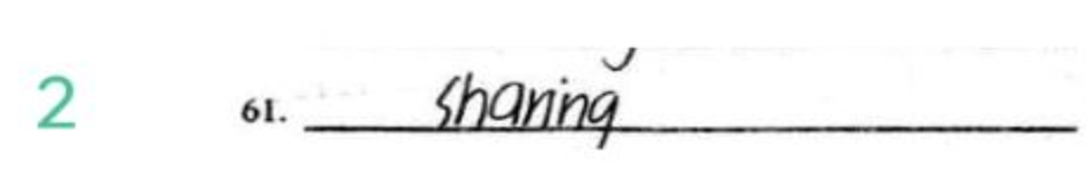 2
61. sharing